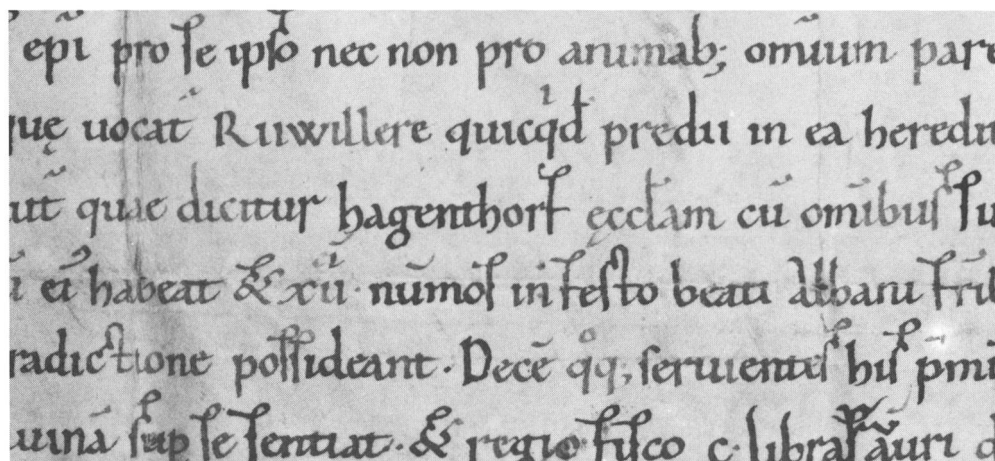 ep̄i pro se ipso nec non pro animab; om̄ium pare
quę uocat̄ Ruwillere quicqͥd̄ predii in ea heredit
ut̄ quae dicitur hagenthorf ęccłam cū om̄ibus su
ei habeat & xii nūmos in festo beati Albani tr̄ib
radictione possideant. Decē qͦq; seruientes his p̄mi
uinā sup se sentiat. & regio fisco c. libras auri